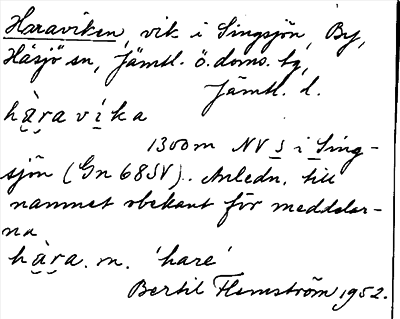 Haraviken, vik i Singsjön, By,
Häsjö sn, Jämtl. ö. doms. tg,
Jämtl. l.
hà̱r̥a víka
1300 m NV s i Sing-
sjön (Gn 68SV). Anledn. till
namnet obekant för meddelar-
na
hà̱r̥a. m. 'hare'
Bertil Flemström 1952.